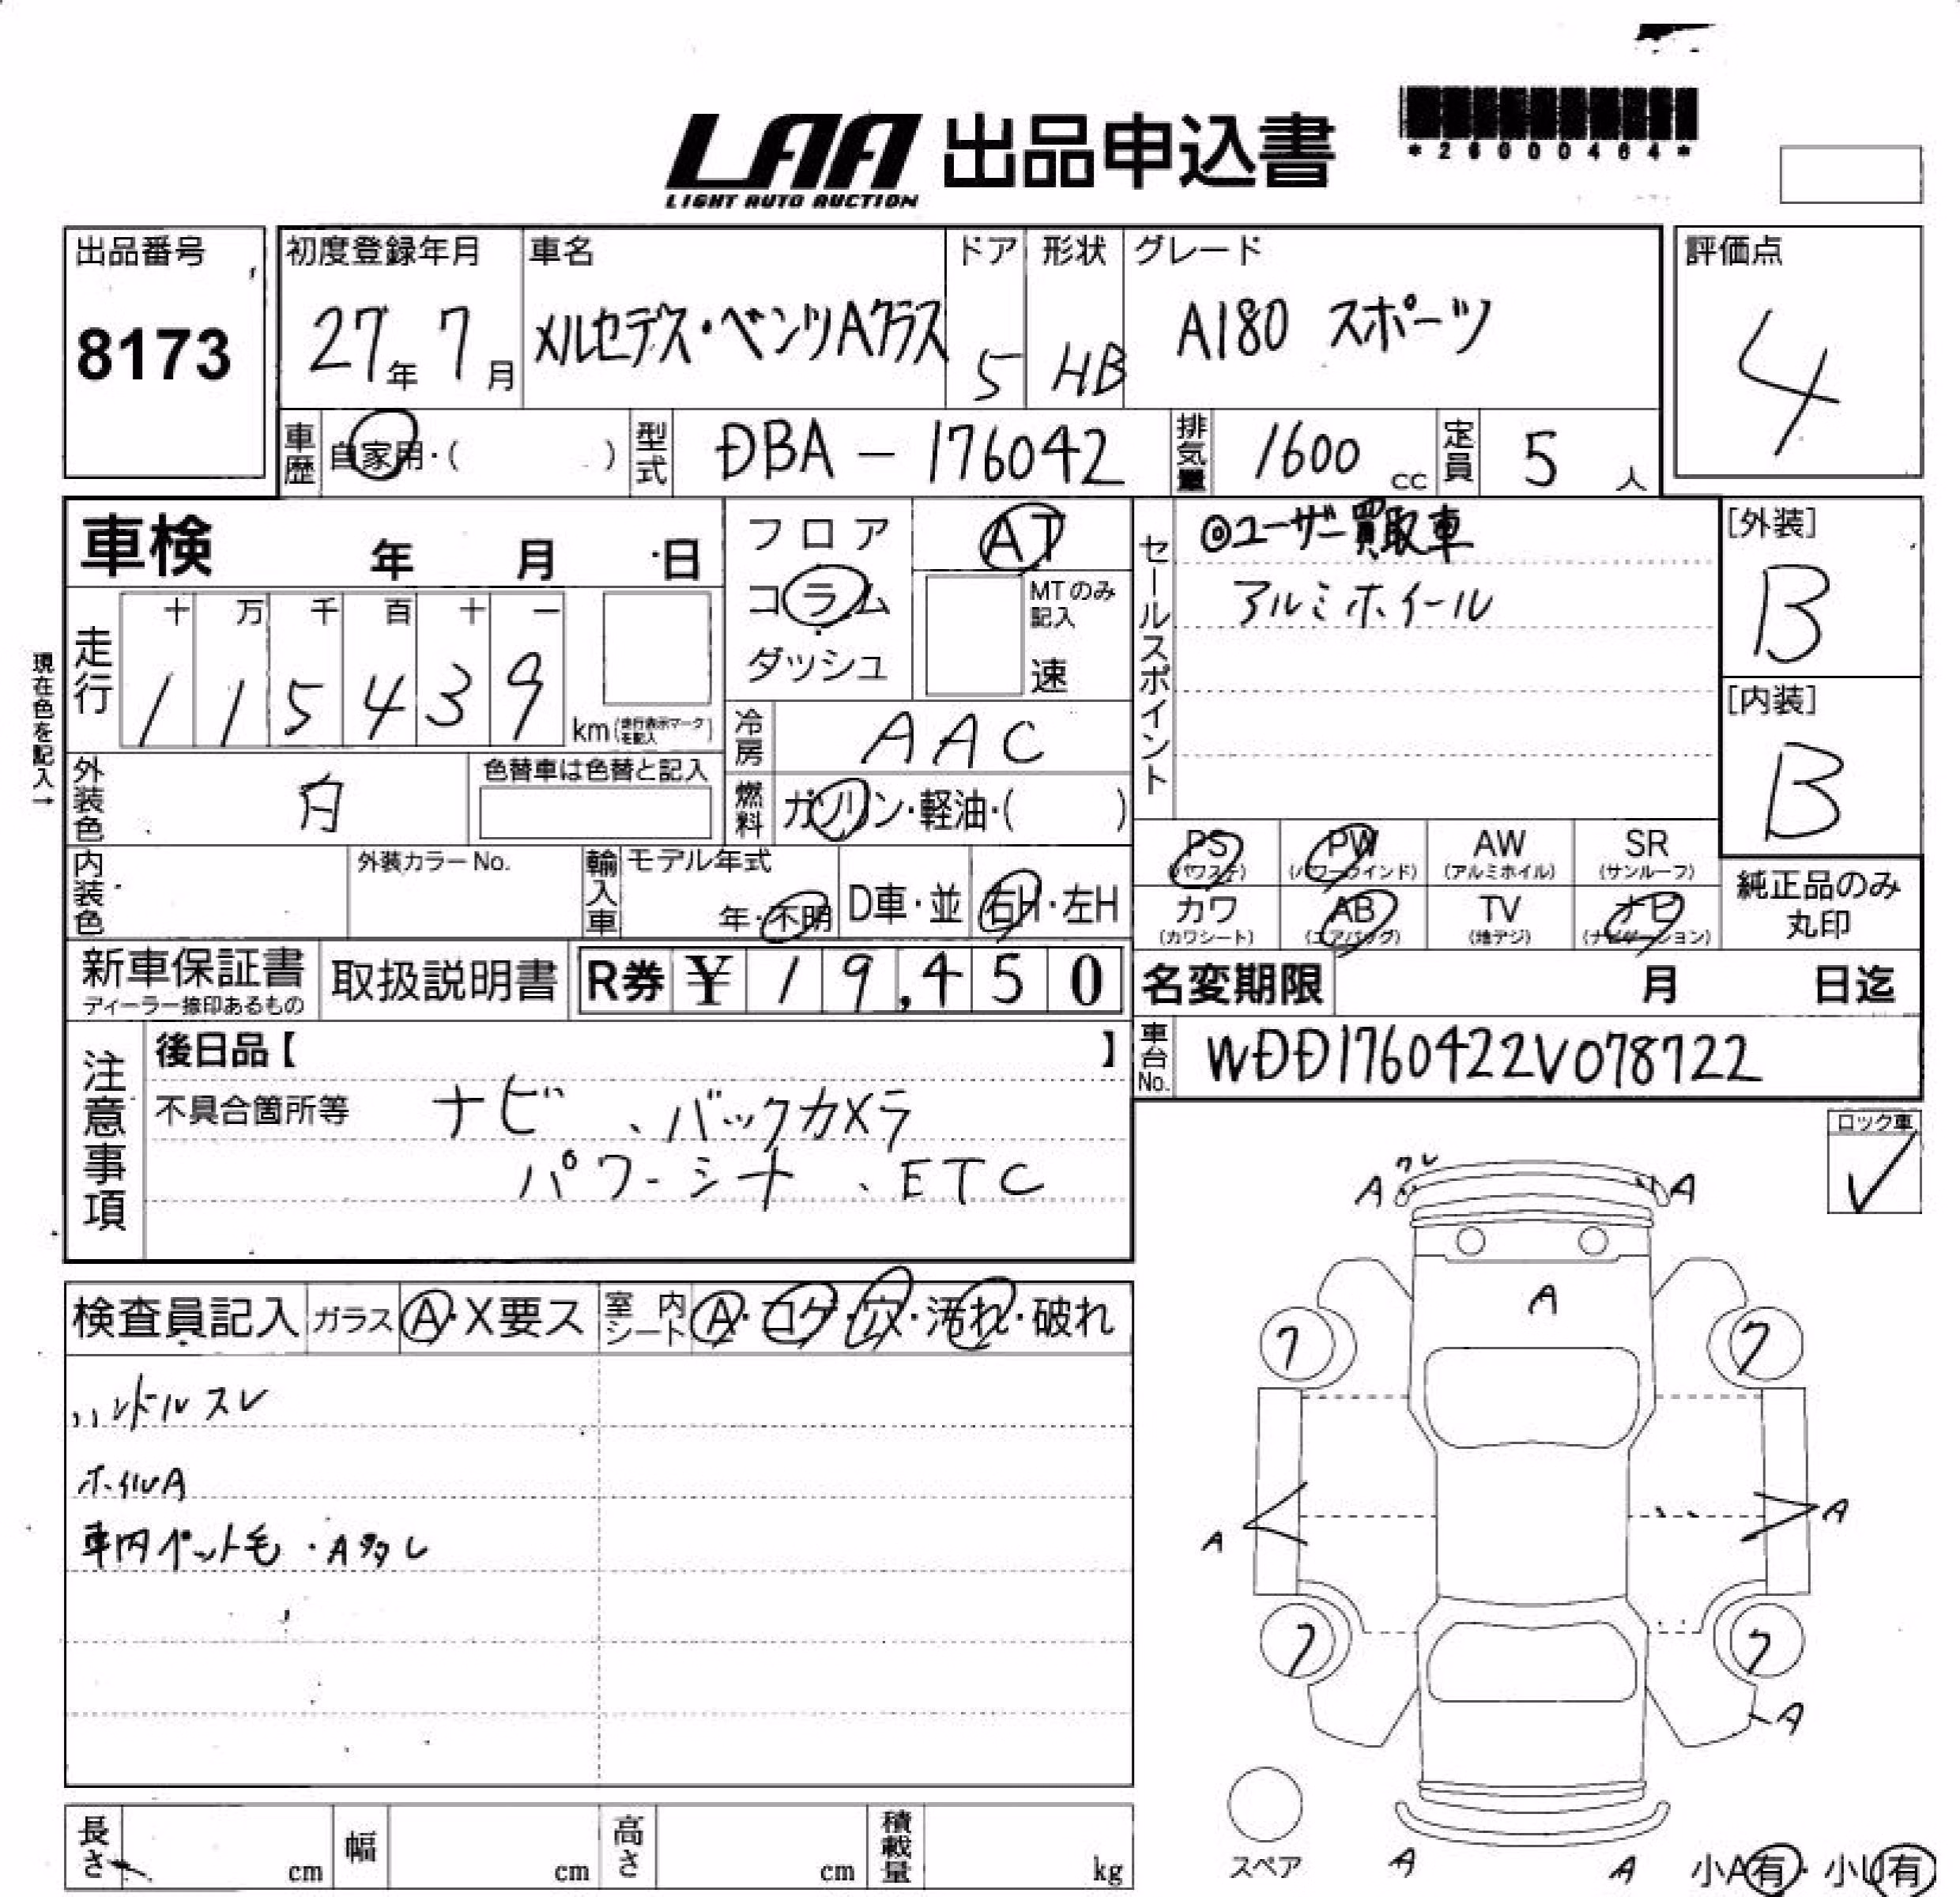 LAA 出品申込書
LIGHT AUTO AUCTION
*26000464*
出品番号
8173
初度登録年月
27年 7月
車名
メルセデス・ベンツAクラス
ドア
5
形状
HB
グレード
A180 スポーツ
評価点
4
車歴 自家用・( )
型式 DBA-176042
排気量 1600 cc
定員 5 人
車検 年 月 日
フロア
コラム
ダッシュ
AT
MTのみ記入
速
セールスポイント
◎ユーザー買取車
アルミホイール
[外装]
B
[内装]
B
現在色を記入→
走行
十 万 千 百 十 一
1 1 5 4 3 9
km(走行表示マークを記入)
冷房 AAC
外装色 白
色替車は色替と記入
燃料 ガソリン・軽油・( )
PS (パワステ)
PW (パワーウインド)
AW (アルミホイル)
SR (サンルーフ)
カワ (カワシート)
AB (エアバッグ)
TV (地デジ)
ナビ (ナビゲーション)
純正品のみ丸印
内装色
外装カラーNo.
輸入車
モデル年式
年・不明
D車・並
右H・左H
新車保証書
ディーラー捺印あるもの
取扱説明書
R券 ¥ 19,450
名変期限 月 日迄
車台No. WDD1760422V078722
注意事項
後日品【 】
不具合箇所等 ナビ、バックカメラ
パワーシート、ETC
ロック車
✓
検査員記入
ガラス A・X要ス
室内シート A・コゲ・穴・汚れ・破れ
ハンドルスレ
ホイルA
車内ペット毛・A多タレ
ワレ
A A
A
7 7
A A
7 7
A
スペア
A A
小A有・小U有
長さ cm
幅 cm
高さ cm
積載量 kg